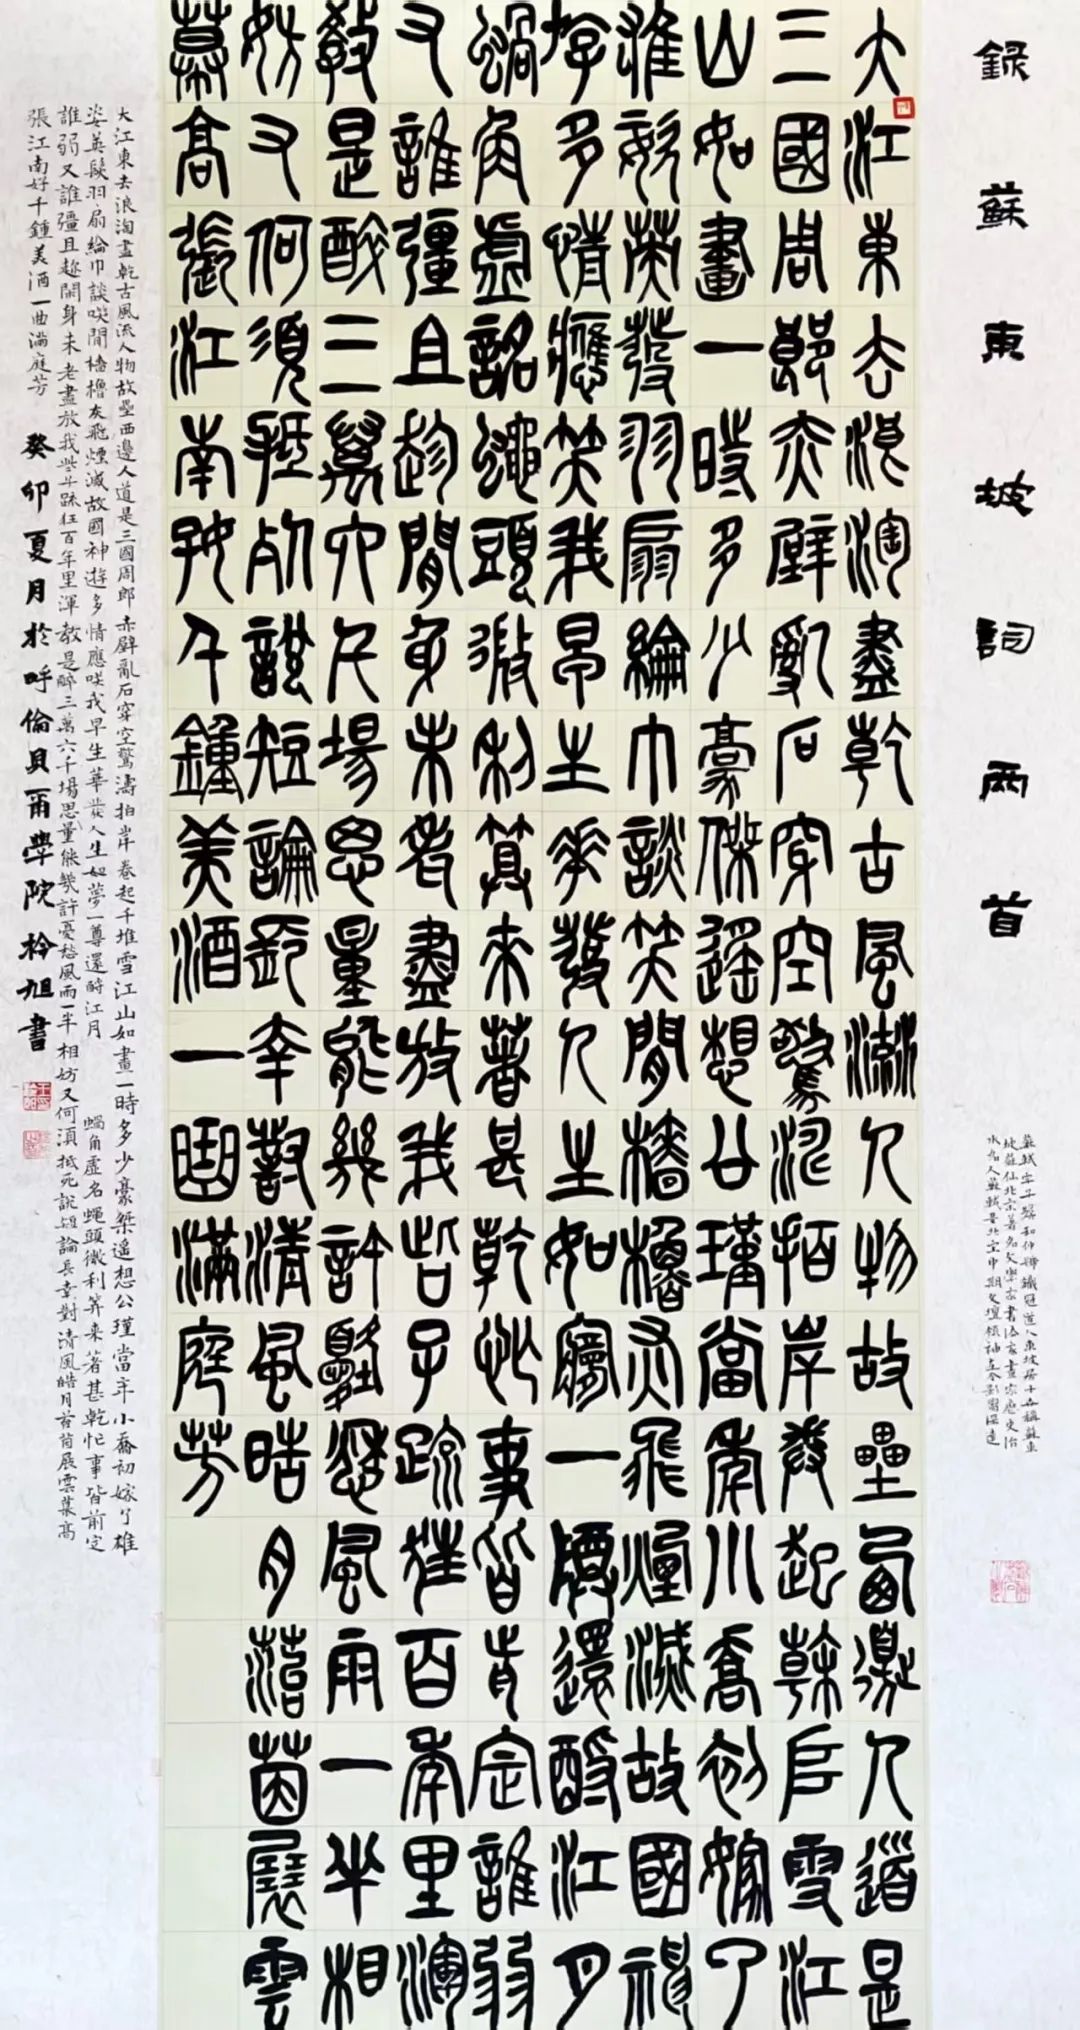 錄蘇東坡詞兩首
蘇軾字子瞻和仲號鐵冠道人東坡居士世稱蘇東
坡蘇仙北宋著名文學家書法家畫家歷史治
水名人蘇軾是北宋中期文壇領袖
大江東去浪淘盡乾古風流人物故壘西邊人道是
三國周郎赤壁亂石穿空驚濤拍岸卷起千堆雪江
山如畫一時多少豪傑遥想公瑾當年小喬初嫁了
雄姿英發羽扇綸巾談笑間檣櫓灰飛煙滅故國神
遊多情應笑我早生華發人生如夢一尊還酹江月
蝸角虛名蠅頭微利算來著甚乾忙事皆前定誰弱
又誰彊且趁閒身未老盡放我些子疏狂百年里渾
教是醉三萬六千場思量能幾許憂愁風雨一半相
妨又何須抵死說短論長幸對清風皓月苔茵展雲
幕高張江南好千鍾美酒一曲滿庭芳
大江東去浪淘盡乾古風流人物故壘西邊人道是三國周郎赤壁亂石穿空驚濤拍岸卷起千堆雪江山如畫一時多少豪桀遥想公瑾當年小喬初嫁了雄
姿英發羽扇綸巾談笑間檣櫓灰飛煙滅故國神遊多情應笑我早生華發人生如夢一尊還酹江月 蝸角虛名蠅頭微利算來著甚乾忙事皆前定
誰弱又誰彊且趁閒身未老盡放我些子疎狂百年里渾教是醉三萬六千場思量能幾許憂愁風雨一半相妨又何須抵死說短論長幸對清風皓月苔茵展雲幕高
張江南好千鍾美酒一曲滿庭芳 癸卯夏月於呼倫貝爾學院柃旭書